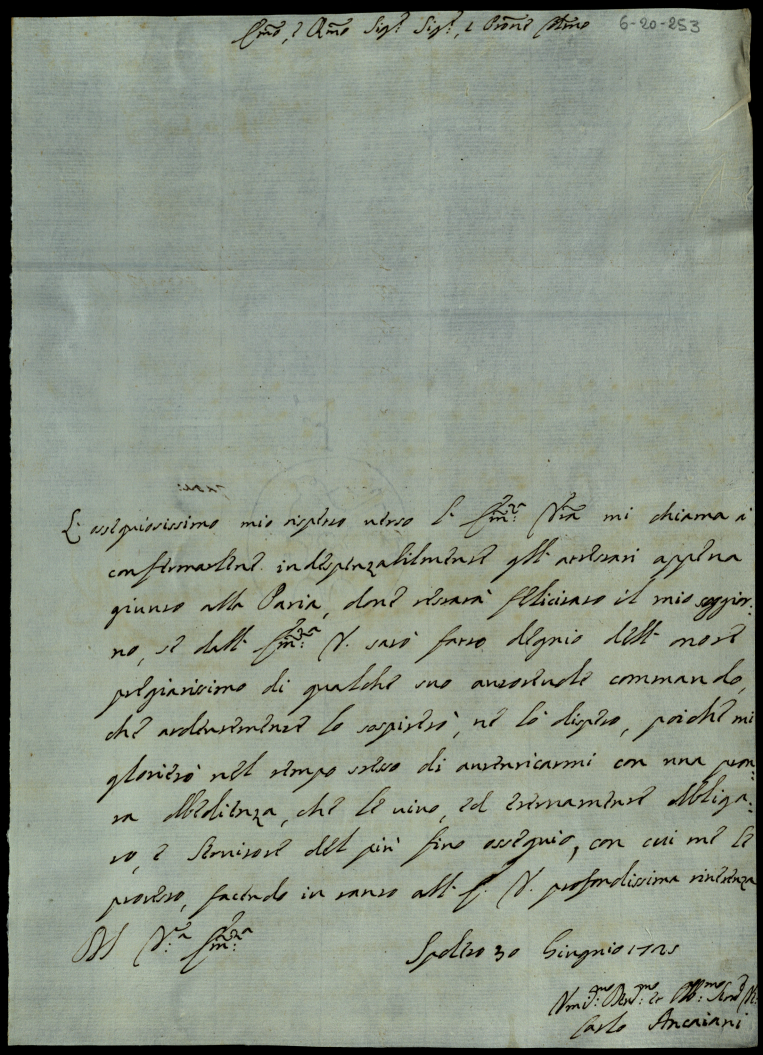 Em̃o, e Rm̃o Sig.r Sig.r, e Prone Colmo 6-20-253
L' ossequiosissimo mio rispetto verso l' Em.za Vr̃a mi chiama à
confermarlene indispenzabilmente gli attestati appena
giunto alla Patria, dove restarà felicitato il mio soggior-
no, se dall' Em.za V. sarò fatto degnio dell' onore
pregiatissimo di qualche suo autorevole commando,
che ardentemente lo sospirerò, ne lo dispero, poiche mi
glorierò nel tempo stesso di autenticarmi con una pron-
ta obbedienza, che le vivo, ed eternamente obbliga-
to, e Servitore del più fino ossequio, con cui me le
protesto, facendo in tanto all' E. V. profondissima riverenza
Di V.ra Em.za Spoleto 30 Giugnio 1725
Vm.mo Dev.mo et Obb.mo Serv.
Carlo Ancaiani